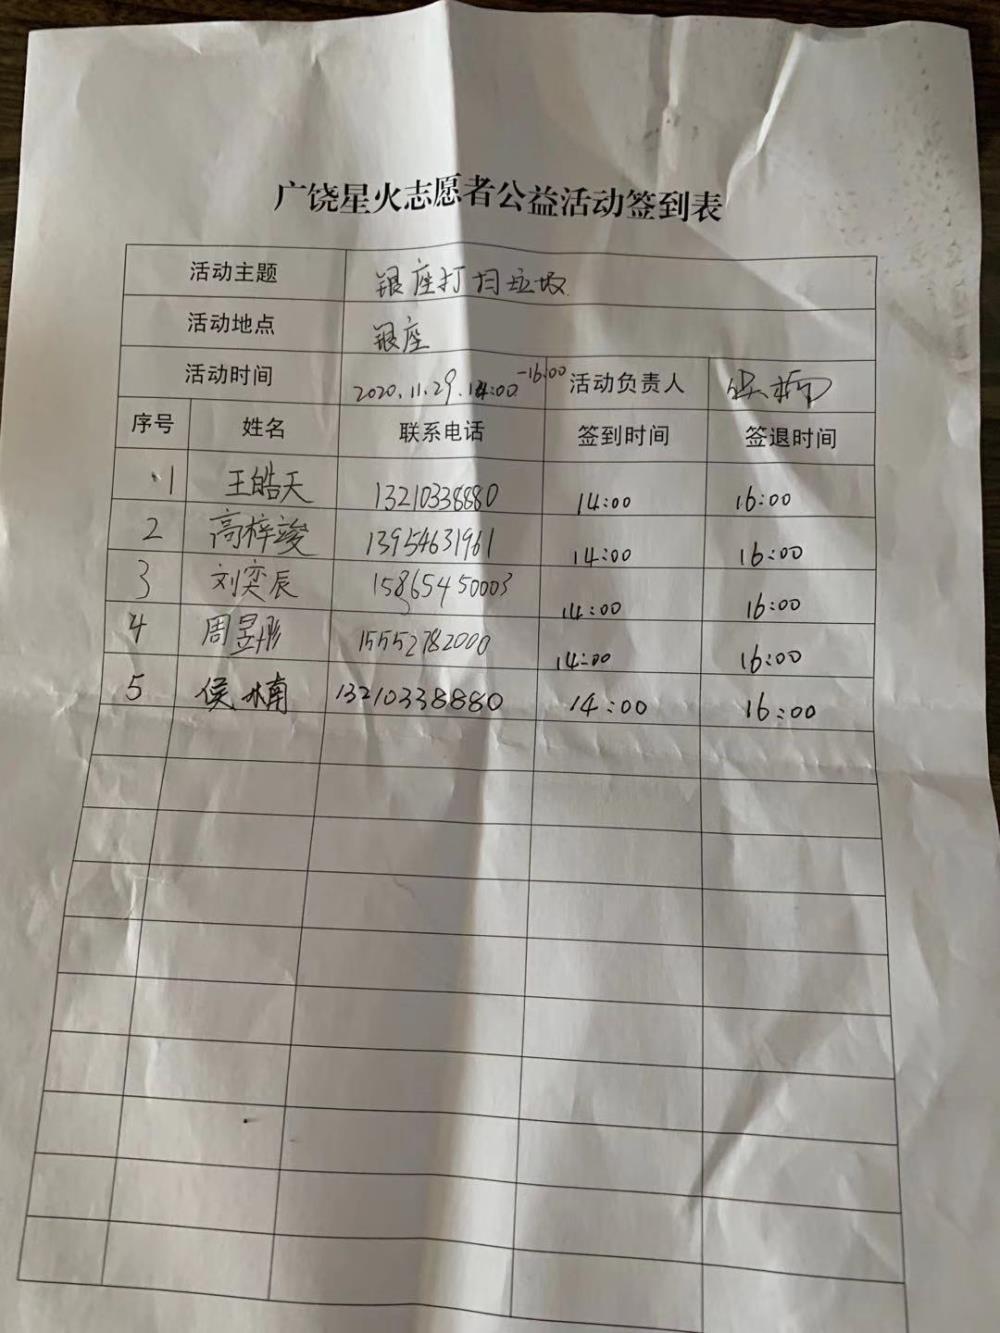 广饶星火志愿者公益活动签到表
活动主题 银座打扫垃圾
活动地点 银座
活动时间 2020.11.29.14:00-16:00 活动负责人
序号 姓名 联系电话 签到时间 签退时间
1 王皓天 13210338880 14:00 16:00
2 高梓竣 13954631961 14:00 16:00
3 刘奕辰 15865450003 14:00 16:00
4 周昱彤 15552782000 14:00 16:00
5 侯楠 13210338880 14:00 16:00